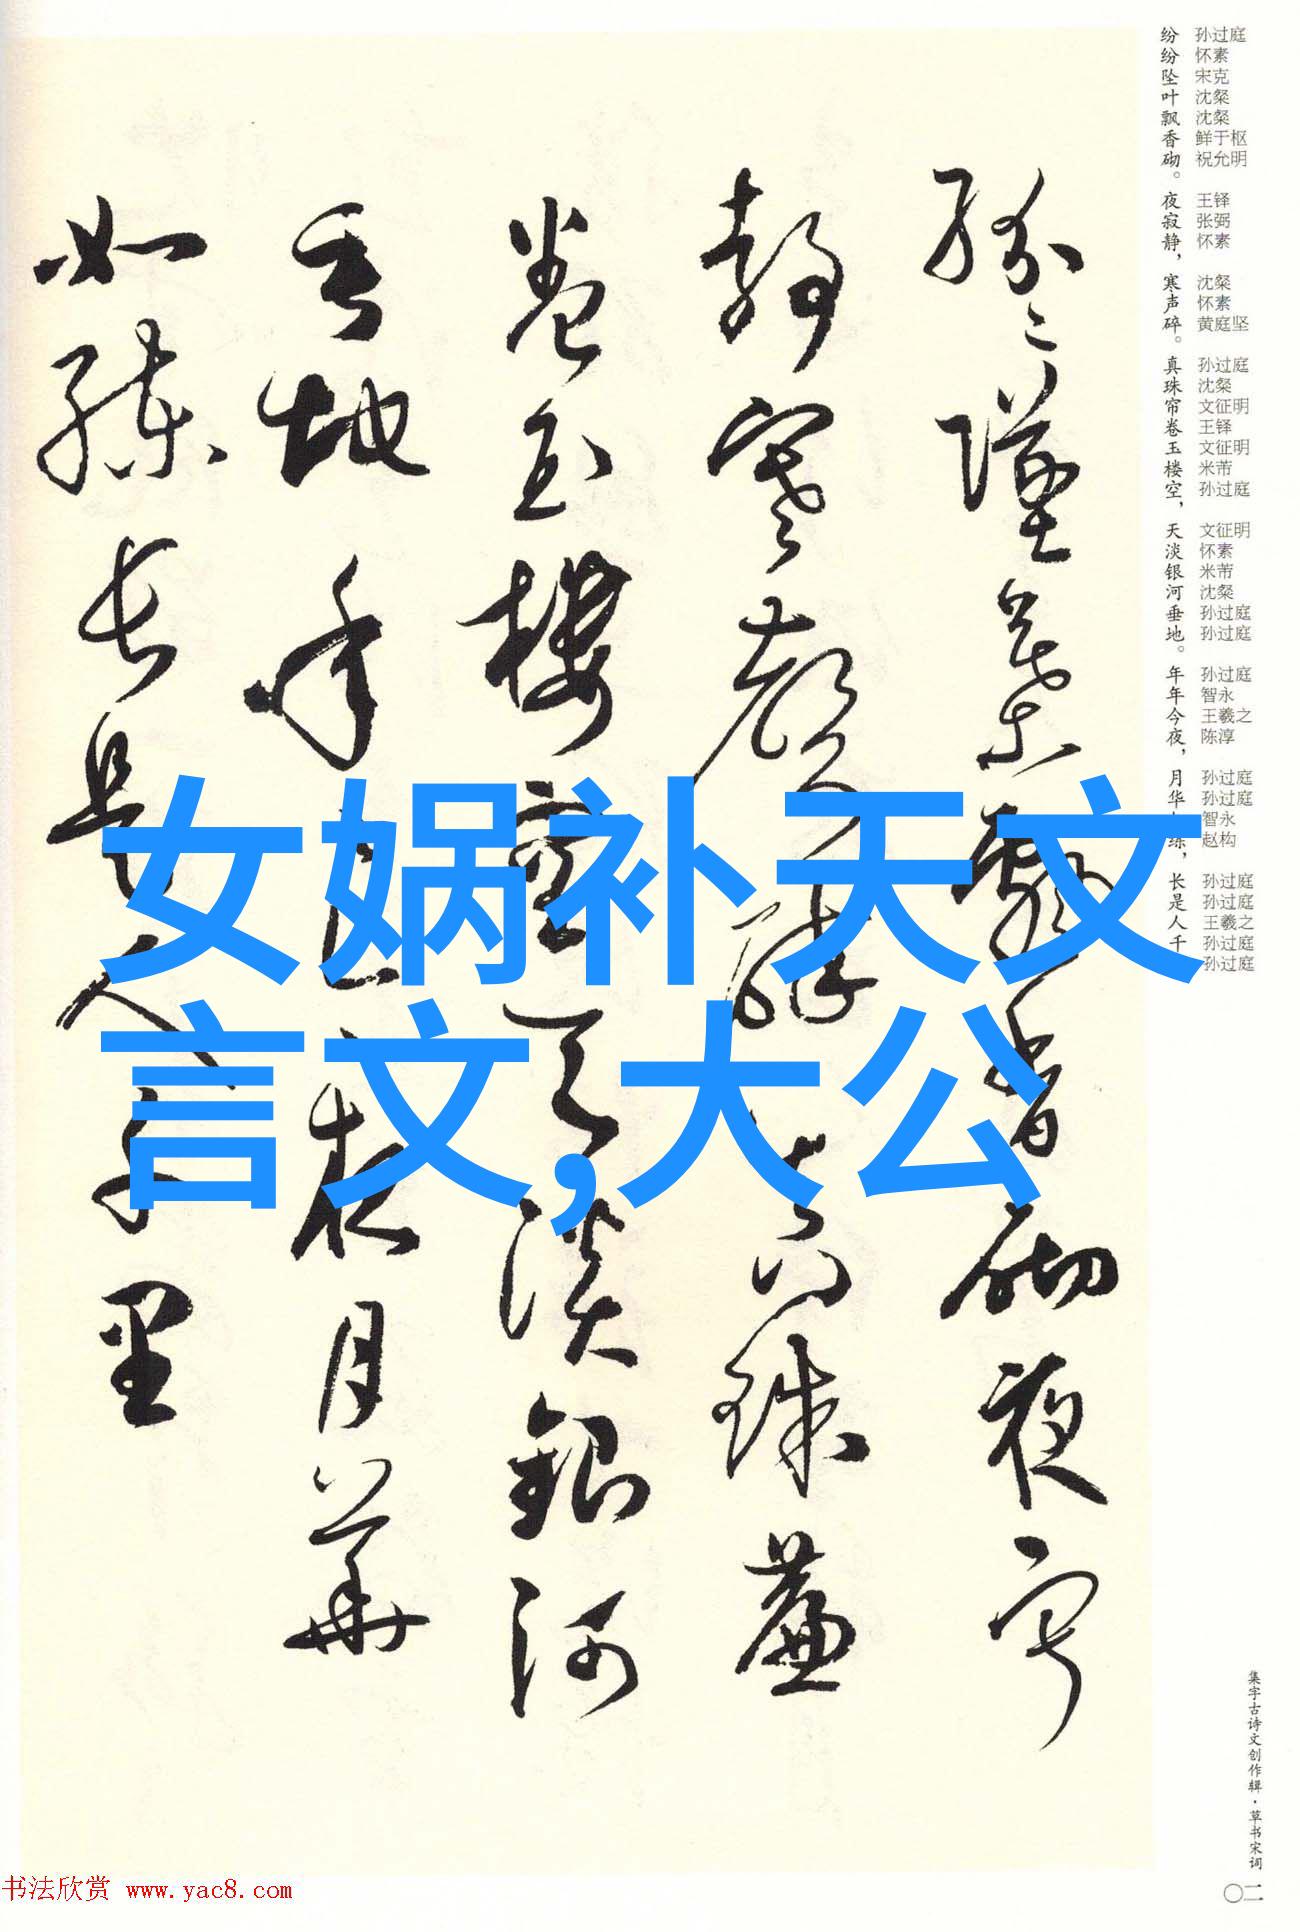 纷纷坠叶飘香砌。夜寂静，寒声碎。真珠帘卷玉楼空，天淡银河垂地。年年今夜，月华 练，长是人千
孙过庭
怀素
宋克
沈粲
沈粲
鲜于枢
祝允明
王铎
张弼
怀素
沈粲
怀素
黄庭坚
孙过庭
沈粲
文征明
王铎
文征明
米芾
孙过庭
文征明
怀素
米芾
沈粲
孙过庭
孙过庭
孙过庭
智永
王羲之
陈淳
孙过庭
孙过庭
智永
赵构
孙过庭
孙过庭
王羲之
孙过庭
孙过庭
纷纷坠叶飘香砌夜寂
静寒声碎真珠帘
卷玉楼空天淡银河
垂地年年今夜月华
如练长是人千里
女娲补天文
言文,大公
集字古诗文创作辑·草书宋词
〇二
书法欣赏 www.yac8.com